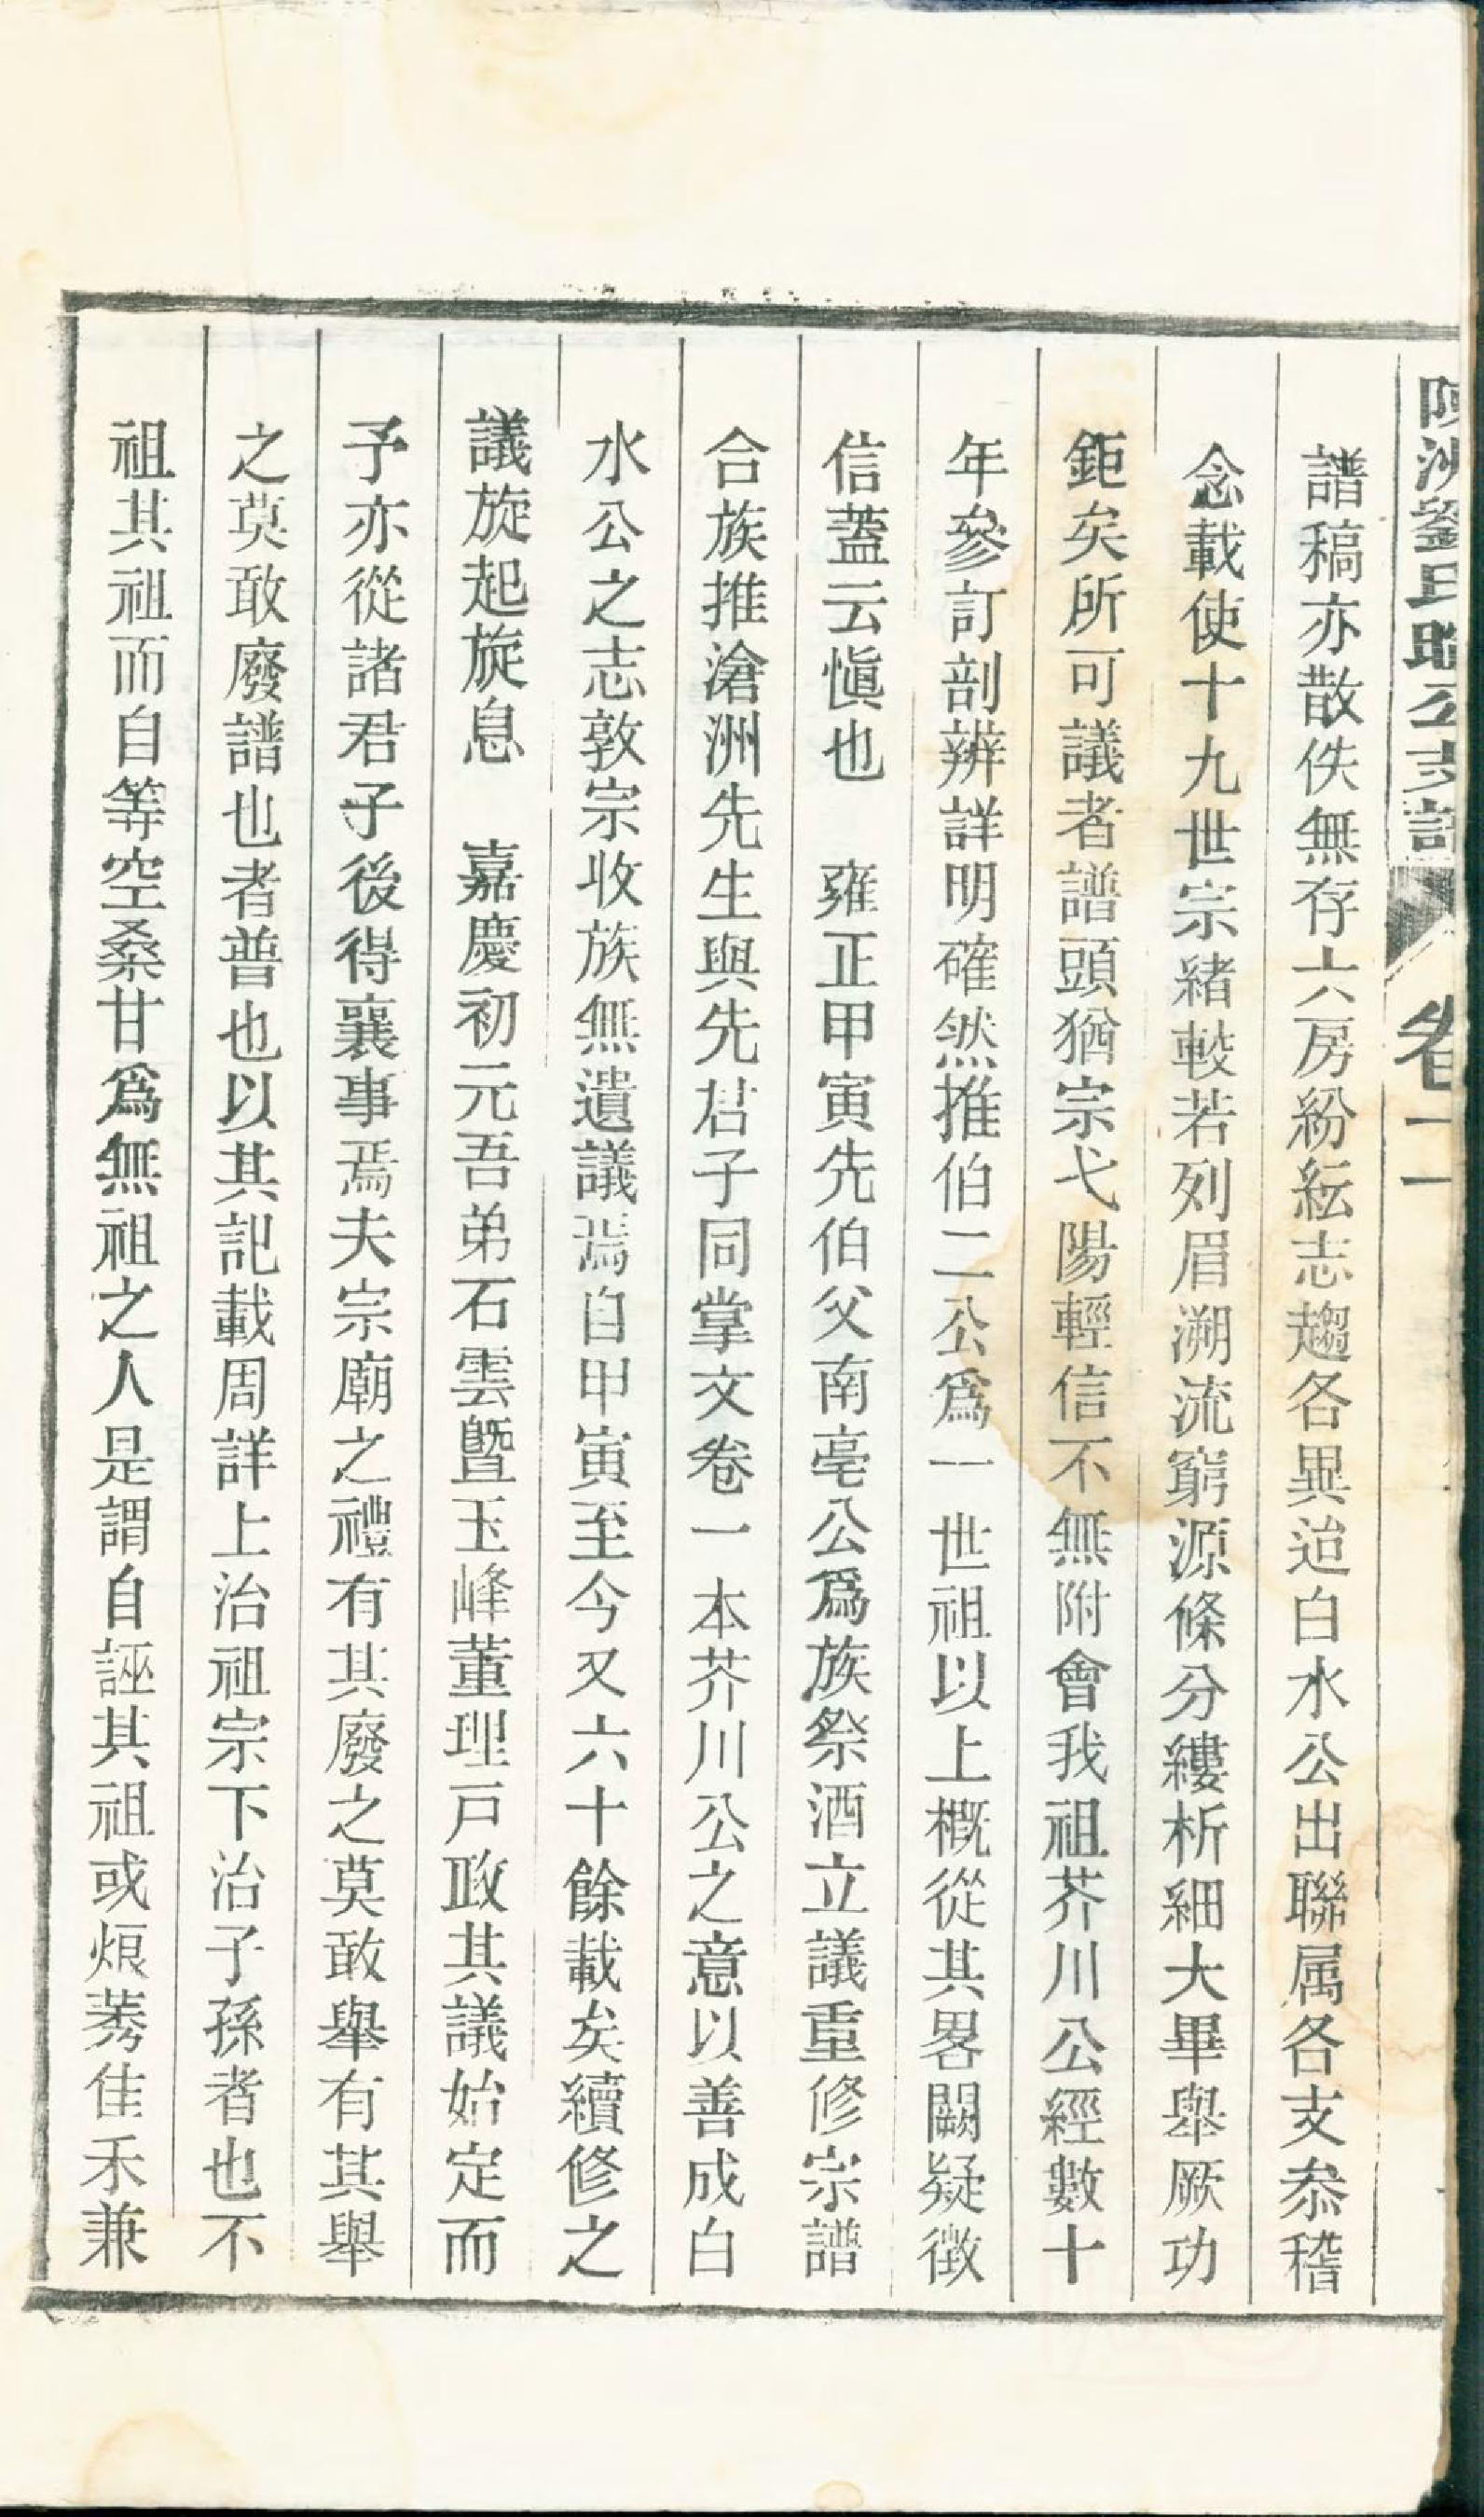 劉氏 公支譜 卷二
譜稿亦散佚無存六房紛紜志趨各異迨白水公出聯属各支叅稽
念載使十九世宗緒較若列眉溯流窮源條分縷析細大畢舉厥功
鉅矣所可議者譜頭猶宗弋陽輕信不無附會我祖芥川公經數十
年參訂剖辨詳明確然推伯二公爲一世祖以上槪從其畧闕疑徵
信蓋云愼也 雍正甲寅先伯父南亳公爲族祭酒立議重修宗譜
合族推滄洲先生與先君子同掌文卷一本芥川公之意以善成白
水公之志敦宗收族無遺議焉自甲寅至今又六十餘載矣續修之
議旋起旋息 嘉慶初元吾弟石雲曁玉峰董理戸政其議始定而
予亦從諸君子後得襄事焉夫宗廟之禮有其廢之莫敢舉有其舉
之莫敢廢譜也者普也以其記載周詳上治祖宗下治子孫者也不
祖其祖而自等空桑甘爲無祖之人是謂自誣其祖或烺莠佳禾兼